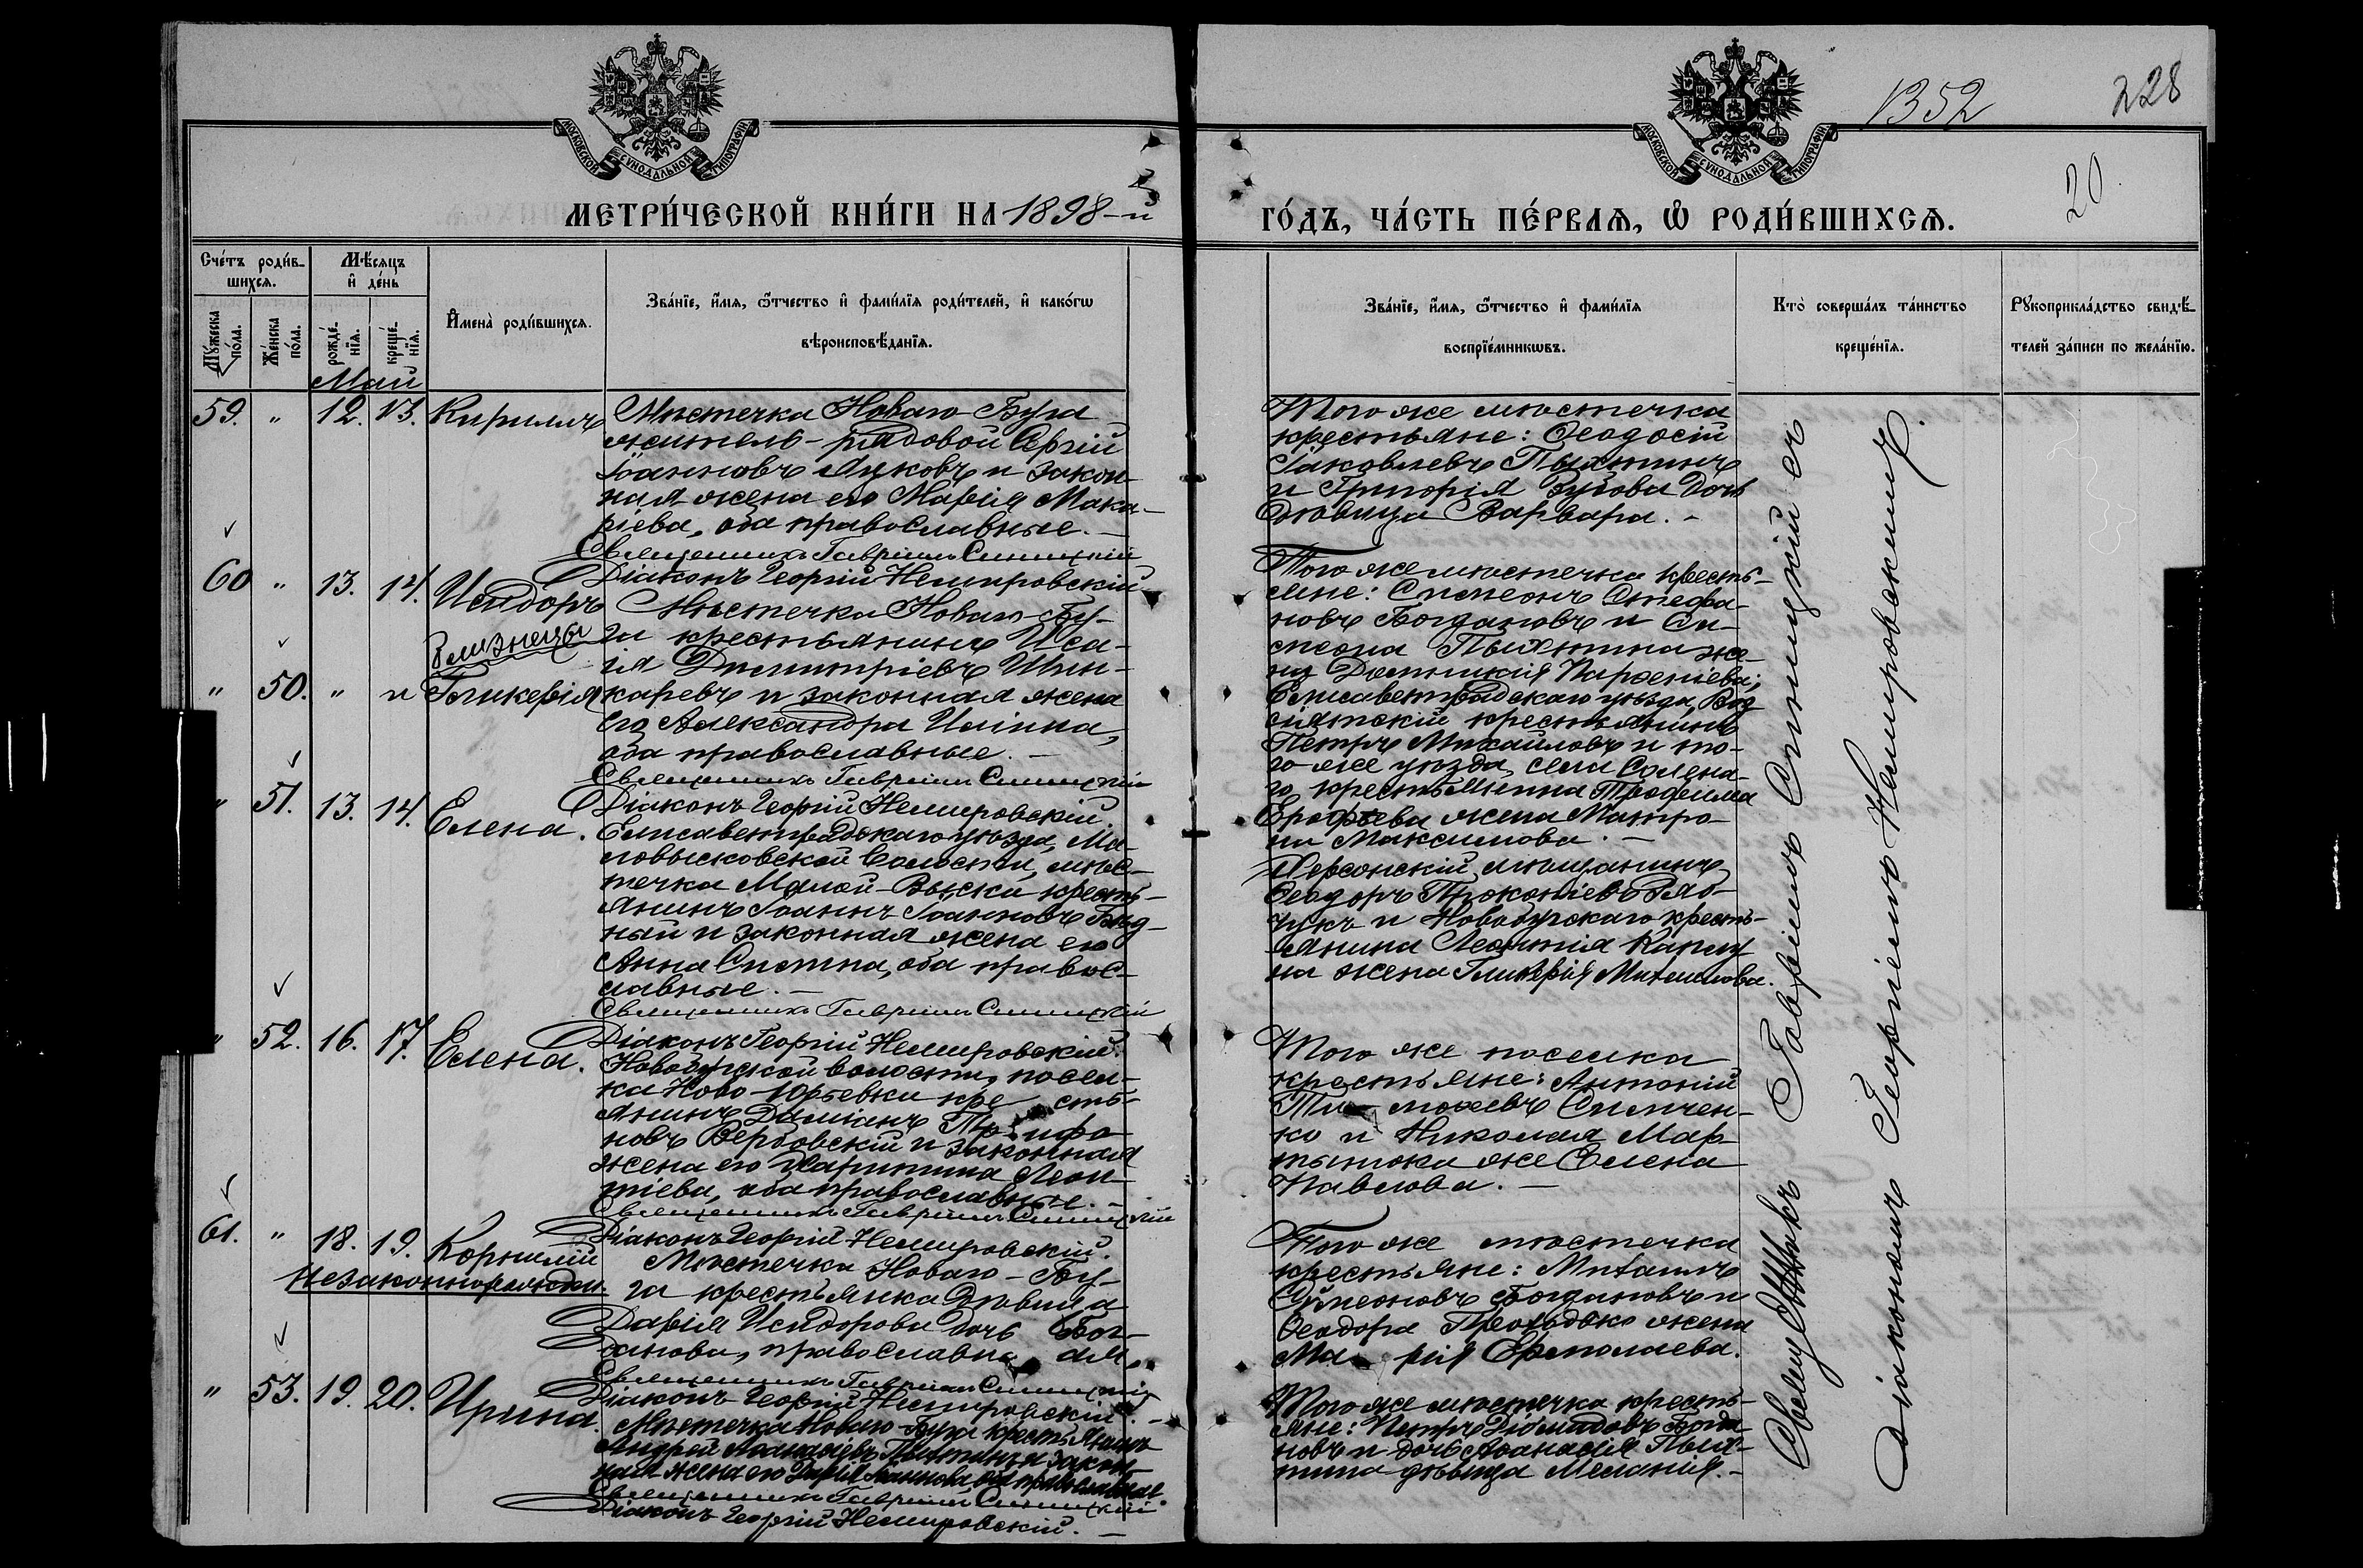 1352
228
20.
МОСКОВСКОЙ СѴНОДАЛЬНОЙ ТИПОГРАФІИ
МОСКОВСКОЙ СѴНОДАЛЬНОЙ ТИПОГРАФІИ
МЕТРИ́ЧЕСКОЙ КНИ́ГИ НА 1898-й
ГО́ДЪ, ЧА́СТЬ ПЕ́РВАѦ, Ѡ РОДИ́ВШИХСѦ.
Сче́тъ роди́в-
шихсѧ.
Мѣ́сѧцъ
и҆ де́нь
Мꙋ́жеска по́ла.
Же́нска по́ла.
рожде́-
нїѧ.
креще́-
нїѧ.
И҆мена̀ роди́вшихсѧ.
Зва́нїе, и҆́мѧ, ѻ҆́тчество и҆ фами́лїѧ роди́телей, и҆ како́гѡ
вѣроисповѣ́данїѧ.
Зва́нїе, и҆́мѧ, ѻ҆́тчество и҆ фами́лїѧ
воспрїе́мникѡвъ.
Кто̀ соверша́лъ та́инство
креще́нїѧ.
Рꙋкоприкла́дство свидѣ́-
телей за́писи по жела́нїю.
Май
59. " 12. 13. Кириллъ
Мѣстечка Новаго-Буга
житель-рядовой Сергій
Іоанновъ Луковъ и закон-
ная жена его Марія Мака-
ріева, оба православные.
Священникъ Гавріилъ Синицкій
Діаконъ Георгій Немировскій
Того же мѣстечка
крестьяне: Ѳеодосій
Іаковлевъ Пыхтинъ
и Григорія Зубова дочь
дѣвица Варвара.
60 " 13. 14. Исидоръ
близнецы
" 50. " и Гликерія
Мѣстечка Новаго-Бу-
га крестьянинъ Иса-
ія Димитріевъ Шин-
каревъ и законная жена
его Александра Иліина,
оба православные.
Священникъ Гавріилъ Синицкій
Діаконъ Георгій Немировскій.
Того же мѣстечка кресть-
яне: Симеонъ Стефа-
новъ Богдановъ и Си-
меона Пыхтина же-
на Домникія Парѳеніева;
Елисаветградскаго уѣзда,
крестьянинъ
Петръ Михайловъ и то-
го же уѣзда, села Солена-
го крестьянина Трофима
Ерофѣева жена Матро-
на Максимова.
" 51. 13. 14. Елена.
Елисаветградскаго уѣзда, Ма-
ловысковской волости, мѣс-
течка Малой-Выски кресть-
янинъ Іоаннъ Іоанновъ Бѣд-
ный и законная жена его
Анна оба правос-
лавные.
Священникъ Гавріилъ Синицкій
Діаконъ Георгій Немировскій.
Херсонскій мѣщанинъ
Ѳеодоръ Прокопіевъ Ряб-
чукъ и Новобугскаго кресть-
янина Леонтія
жена Гликерія Михаилова.
" 52. 16. 17. Елена.
Новобугской волости, посел-
ка Ново-Юрьевки кре сть-
янинъ Даміанъ Трифо
новъ Вербовскій и законная
жена его Харитина Леон-
тіева, оба православные.
Священникъ Гавріилъ Синицкій
Діаконъ Георгій Немировскій.
Того же поселка
крестьяне: Антоній
Ти моѳеевъ Симчен-
ко и Николая Мар-
тынюка же Елена
Павлова.
61. " 18. 19. Корнилій
незаконнорожден.
Мѣстечка Новаго-Бу-
га крестьянка дѣвица
Дарія Исидорова дочь Бог-
данова, православна ая.
Священникъ Гавріилъ Синицкій
Діаконъ Георгій Немировскій.
Того же мѣстечка
крестьяне: Михаилъ
Сѵмеоновъ Богдановъ и
Ѳеодора жена
Ма рія Ермолаева.
" 53. 19. 20. Ирина.
Мѣстечка Новаго-Буга крестьянинъ
Андрей Аѳанасіевъ Пыхтинъ и закон-
ная жена его Дарія Іоаннова, оба православные.
Священникъ Гавріилъ Синицкій
Діаконъ Георгій Немировскій.
Того же мѣстечка кресть-
яне: Петръ Діомидовъ Богда-
новъ и дочь Аѳанасія Пых-
тина дѣвица Меланія.
Священникъ Гавріилъ Синицкій съ
Діакономъ Георгіемъ Немировскимъ.